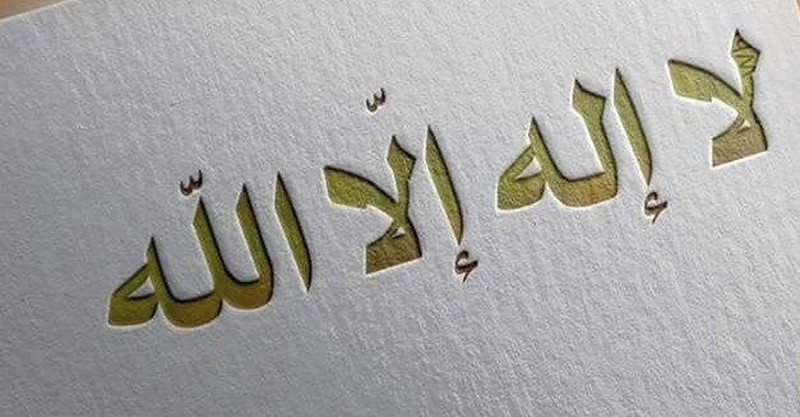 لا إله إلّا اللّه